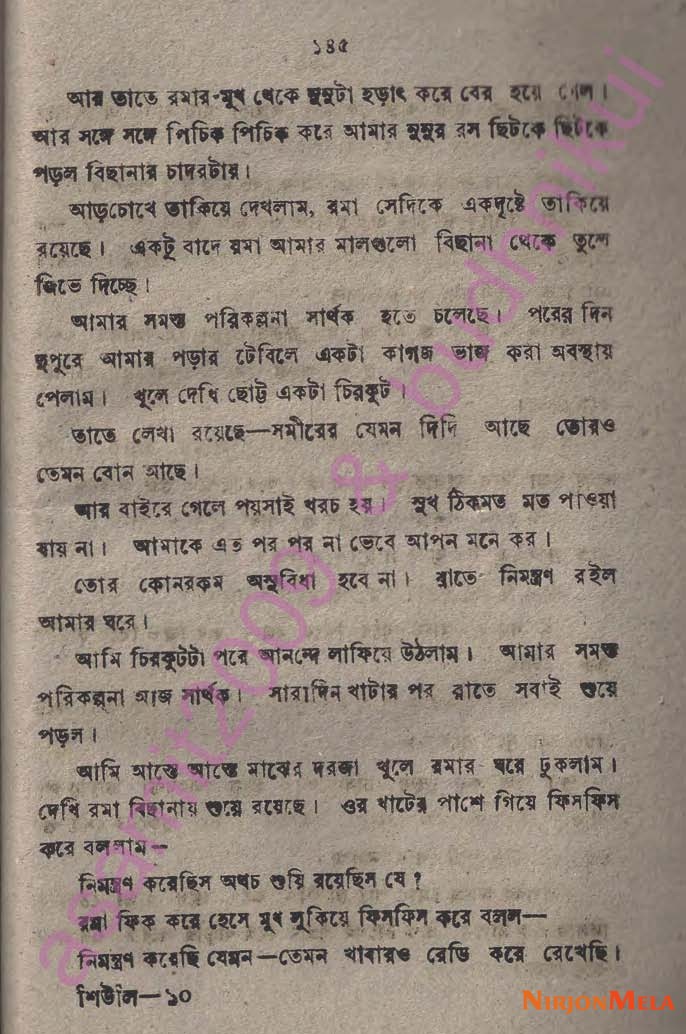 ১৪৫
আর তাতে রমার মুখ থেকে নুনুটা হড়াৎ করে বের হয়ে গেল।
আর সঙ্গে সঙ্গে পিচিক পিচিক করে আমার নুনুর রস ছিটকে ছিটকে
পড়ল বিছানার চাদরটায়।
আড়চোখে তাকিয়ে দেখলাম, রমা সেদিকে একদৃষ্টে তাকিয়ে
রয়েছে। একটু বাদে রমা আমার মালগুলো বিছানা থেকে তুলে
জিভে দিচ্ছে।
আমার সমস্ত পরিকল্পনা সার্থক হতে চলেছে। পরের দিন
দুপুরে আমার পড়ার টেবিলে একটা কাগজ ভাজ করা অবস্থায়
পেলাম। খুলে দেখি ছোট্ট একটা চিরকুট।
তাতে লেখা রয়েছে—সমীরের যেমন দিদি আছে তোরও
তেমন বোন আছে।
আর বাইরে গেলে পয়সাই খরচ হয়। সুখ ঠিকমত মত পাওয়া
যায় না। আমাকে এত পর পর না ভেবে আপন মনে কর।
তোর কোনরকম অসুবিধা হবে না। রাতে নিমন্ত্রণ রইল
আমার ঘরে।
আমি চিরকুটটা পরে আনন্দে লাফিয়ে উঠলাম। আমার সমস্ত
পরিকল্পনা আজ সার্থক। সারাদিন খাটার পর রাতে সবাই শুয়ে
পড়ল।
আমি আস্তে আস্তে মাঝের দরজা খুলে রমার ঘরে ঢুকলাম।
দেখি রমা বিছানায় শুয়ে রয়েছে। ওর খাটের পাশে গিয়ে ফিসফিস
করে বললাম—
নিমন্ত্রণ করেছিস অথচ শুয়ি রয়েছিস যে?
রমা ফিক করে হেসে মুখ লুকিয়ে ফিসফিস করে বলল—
নিমন্ত্রণ করেছি যেমন—তেমন খাবারও রেডি করে রেখেছি।
শিউলি—১০
asamit2009 & budhhikui
NIRJONMELA